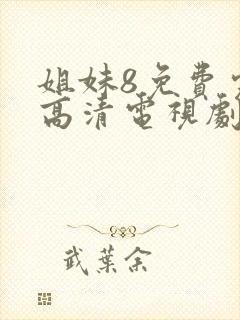 姐妹8免費
高清電視劇
武葉余